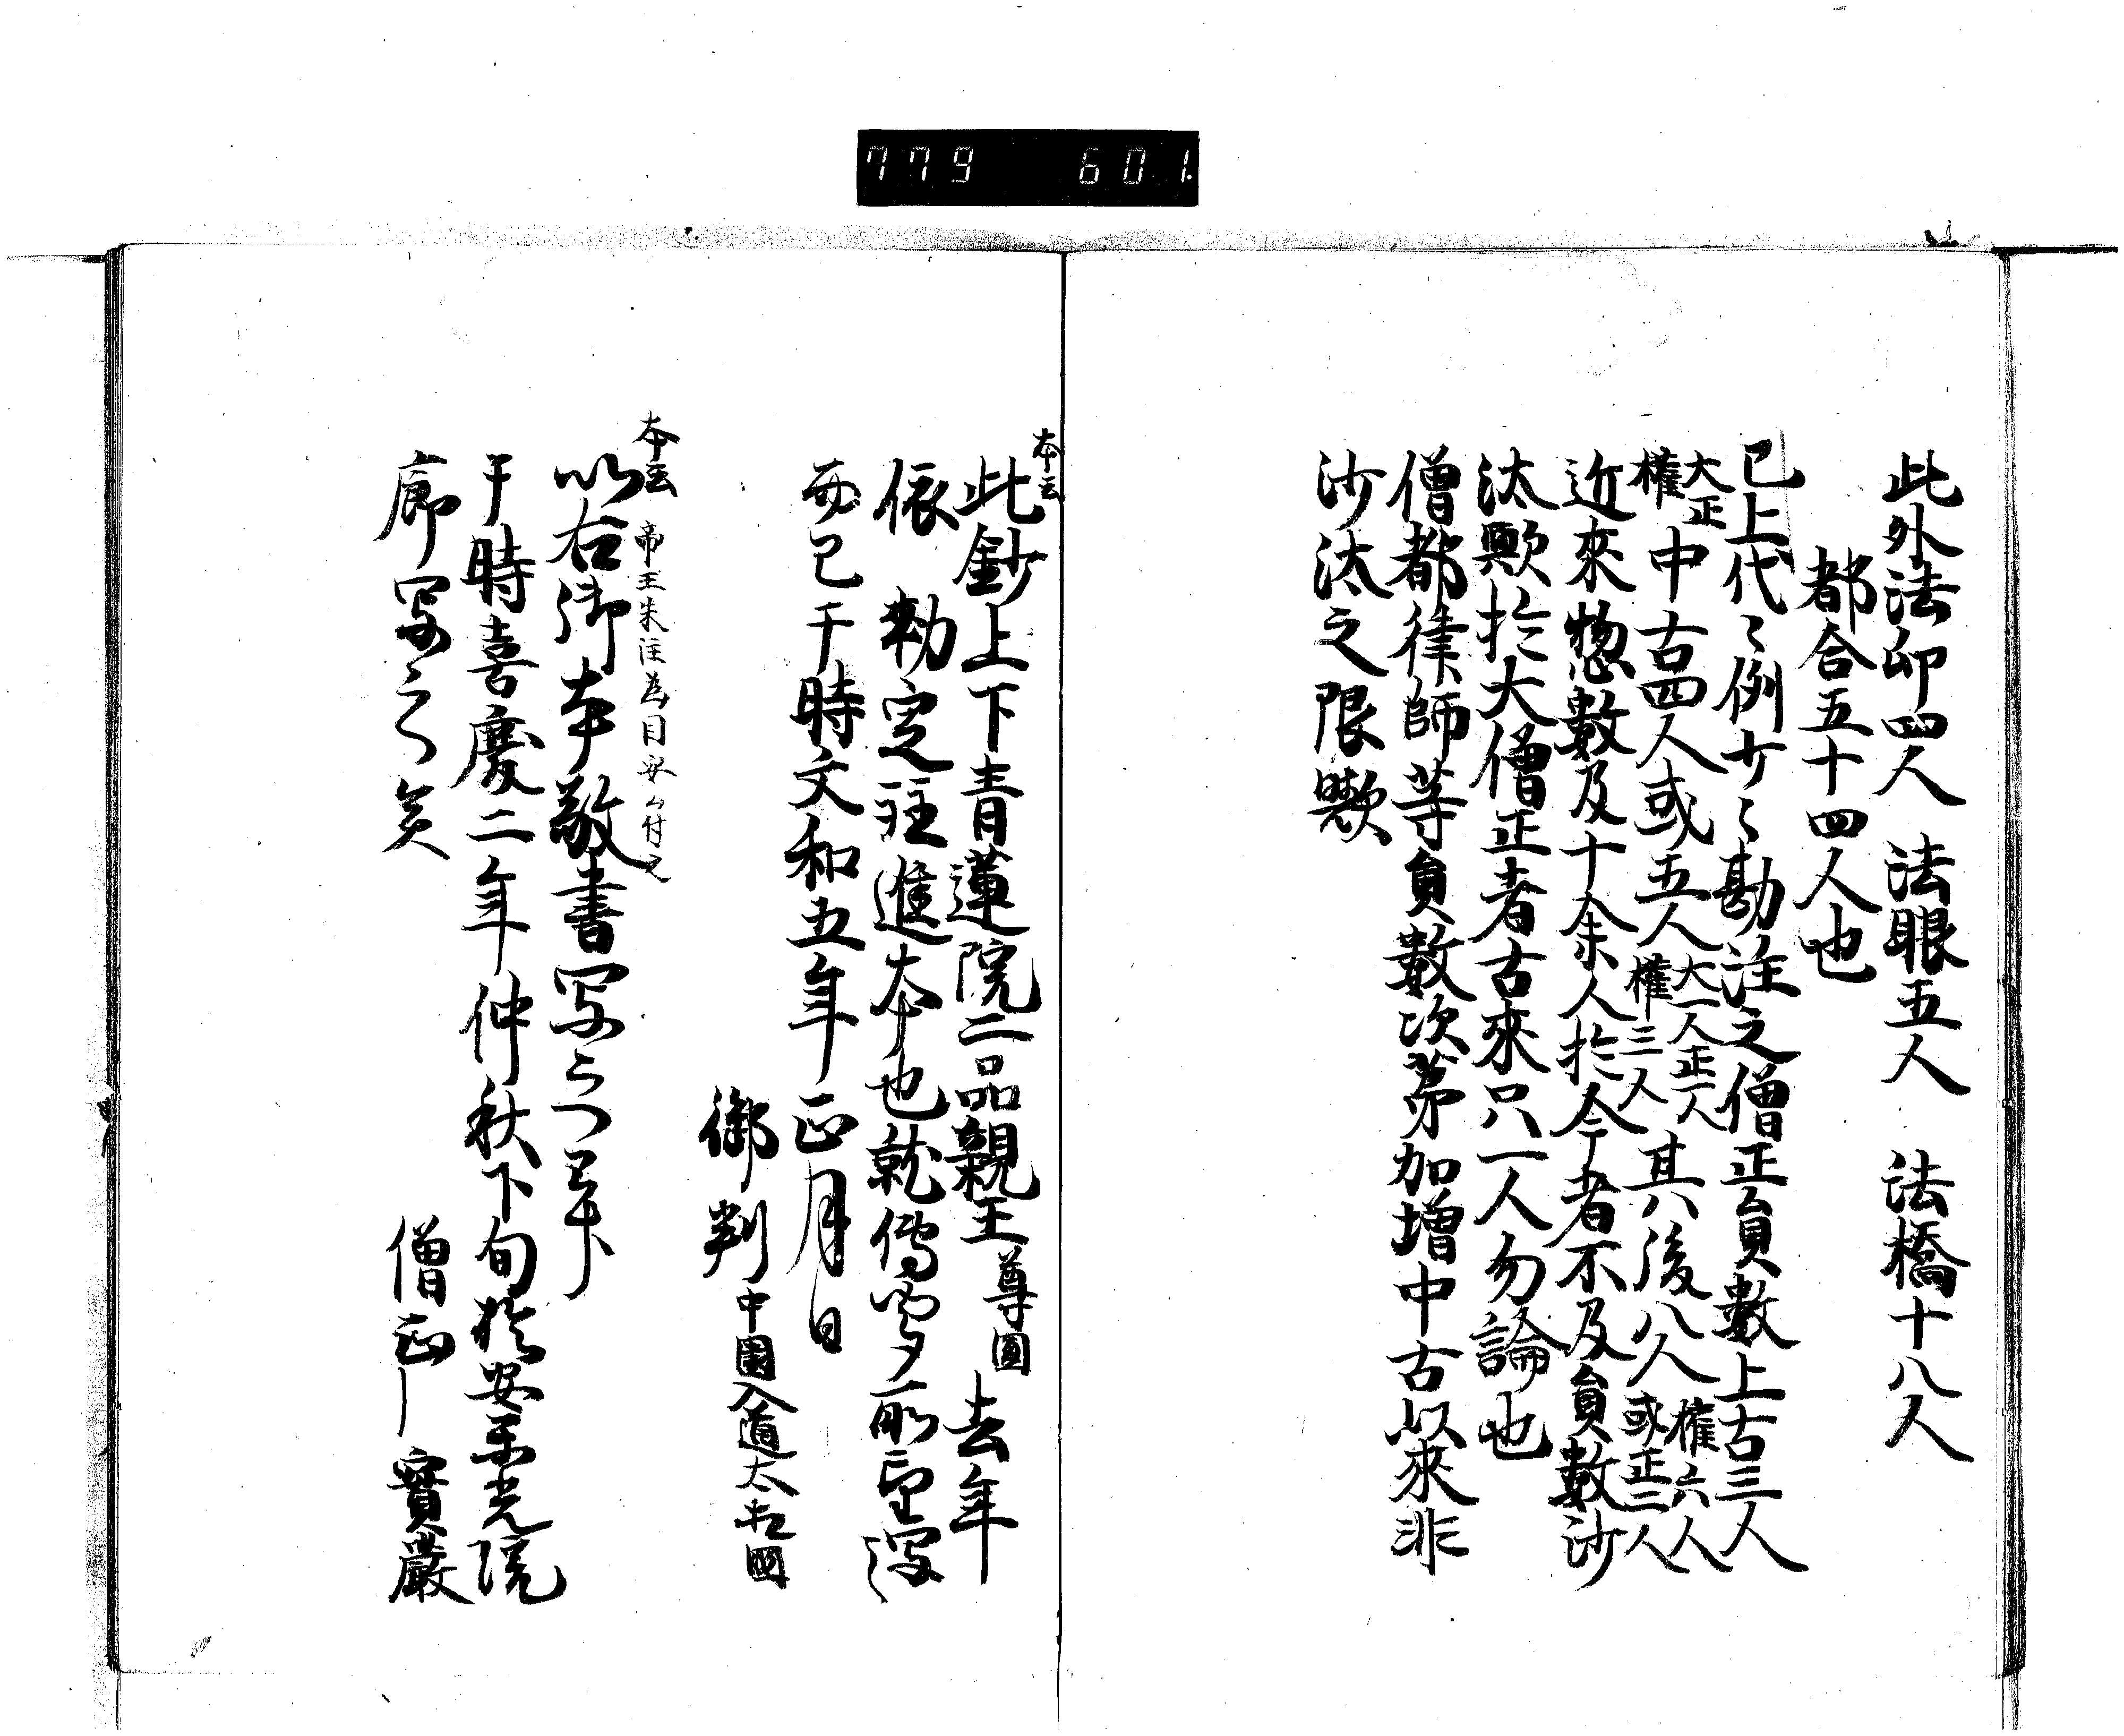 779 601.
此外法印四人 法眼五人 法橋十八人
都合五十四人也
已上代〻例廿〻勘注之僧正員數上古三人
大正權 中古四人或五人 大一人正一人權三人 其後八人 權六人或正二人
近來惣數及十余人於今者不及員數沙
汰歟於大僧正者古來只一人勿論也
僧都律師等員數次第加增中古以來非
沙汰之限歟
本云
此鈔上下青蓮院二品親王尊圓去年
依 勅定註進本也就傳 写之
而已于時文和五年正月日
御判 中園入道太相國
本云 帝王朱注為目安付之
以右御本敬書写之畢
于時嘉慶二年仲秋下旬於安樂光院
廊写之矣
僧正 實嚴